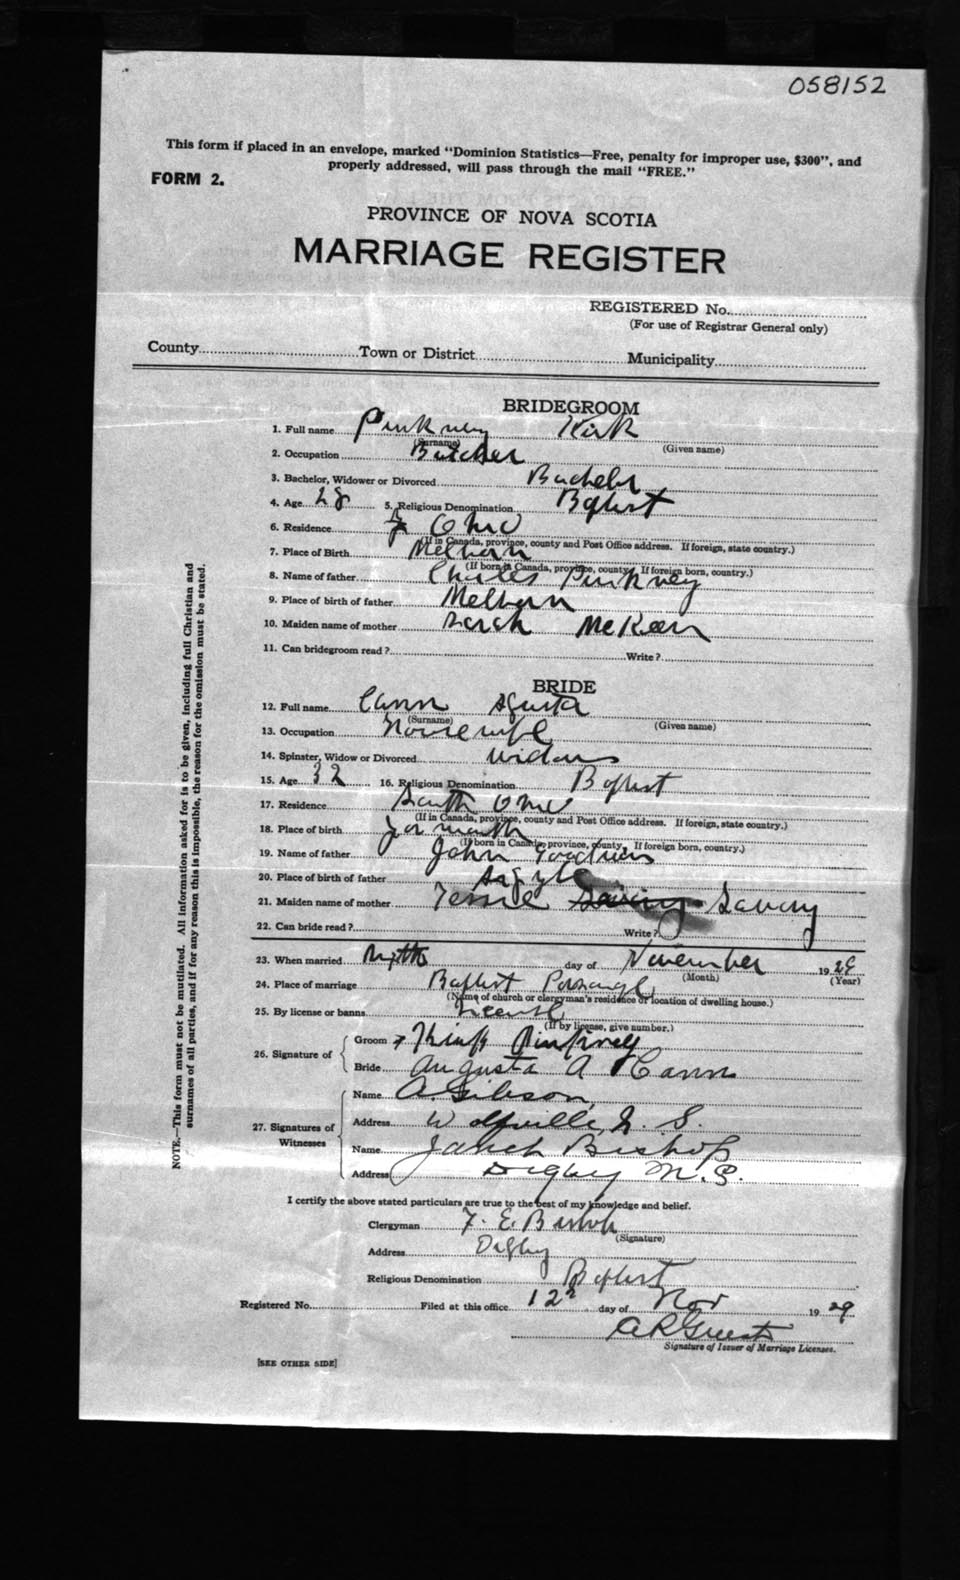 058152
This form if placed in an envelope, marked "Dominion Statistics—Free, penalty for improper use, $300", and
properly addressed, will pass through the mail "FREE."
FORM 2.
PROVINCE OF NOVA SCOTIA
MARRIAGE REGISTER
REGISTERED No.
(For use of Registrar General only)
County Town or District Municipality
BRIDEGROOM
1. Full name Pinkney Kirk
(Surname) (Given name)
2. Occupation Butcher
3. Bachelor, Widower or Divorced Bachelor
4. Age 28 5. Religious Denomination Baptist
6. Residence Ohio
(If in Canada, province, county and Post Office address. If foreign, state country.)
7. Place of Birth Melborn
(If born in Canada, province, county. If foreign born, country.)
8. Name of father Charles Pinkney
9. Place of birth of father Melborn
10. Maiden name of mother Sarah McKeen
11. Can bridegroom read? Write?
BRIDE
12. Full name Cann Agusta
(Surname) (Given name)
13. Occupation Housewife
14. Spinster, Widow or Divorced Widow
15. Age 32 16. Religious Denomination Baptist
17. Residence South Ohio
(If in Canada, province, county and Post Office address. If foreign, state country.)
18. Place of birth Yarmouth
(If born in Canada, province, county. If foreign born, country.)
19. Name of father John Goodwin
20. Place of birth of father Argyle
21. Maiden name of mother Tessie Savery Savery
22. Can bride read? Write?
23. When married day of November 1929
(Month) (Year)
24. Place of marriage Baptist Parsonage
(Name of church or clergyman's residence or location of dwelling house.)
25. By license or banns License
(If by license, give number.)
26. Signature of Groom Pinkney
Bride Augusta A Cann
27. Signatures of Witnesses
Name A. Gibson
Address Wolfville, N. S.
Name Bishop
Address Digby N. S.
NOTE.—This form must not be mutilated. All information asked for is to be given, including full Christian and
surnames of all parties, and if for any reason this is impossible, the reason for the omission must be stated.
I certify the above stated particulars are true to the best of my knowledge and belief.
Clergyman F. E. Bishop
(Signature)
Address Digby
Religious Denomination Baptist
Registered No. Filed at this office 12 day of Nov 1929
A R Guest
Signature of Issuer of Marriage Licenses.
[SEE OTHER SIDE]